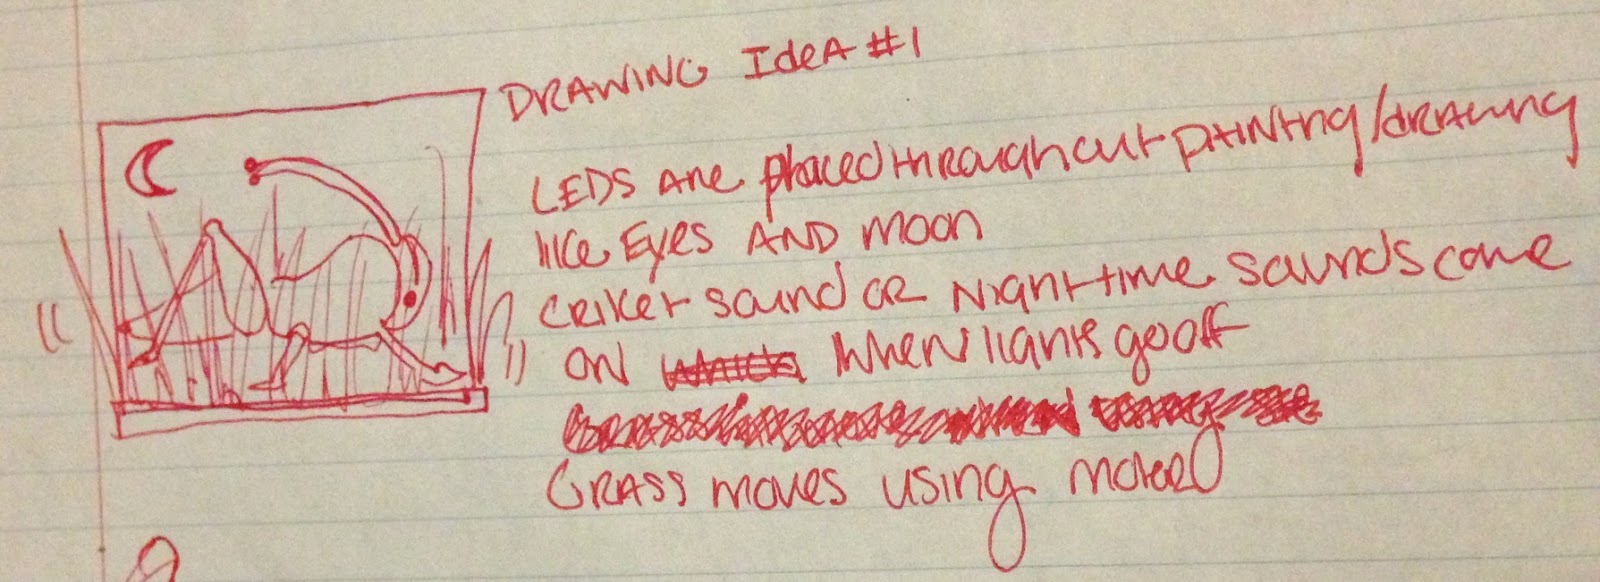 DRAWING IdeA #1
LEDS are placed throughout PAINting/drawing
like Eyes AND moon
criket sound or Nighttime sounds come
on when lights go off
Grass moves using motor